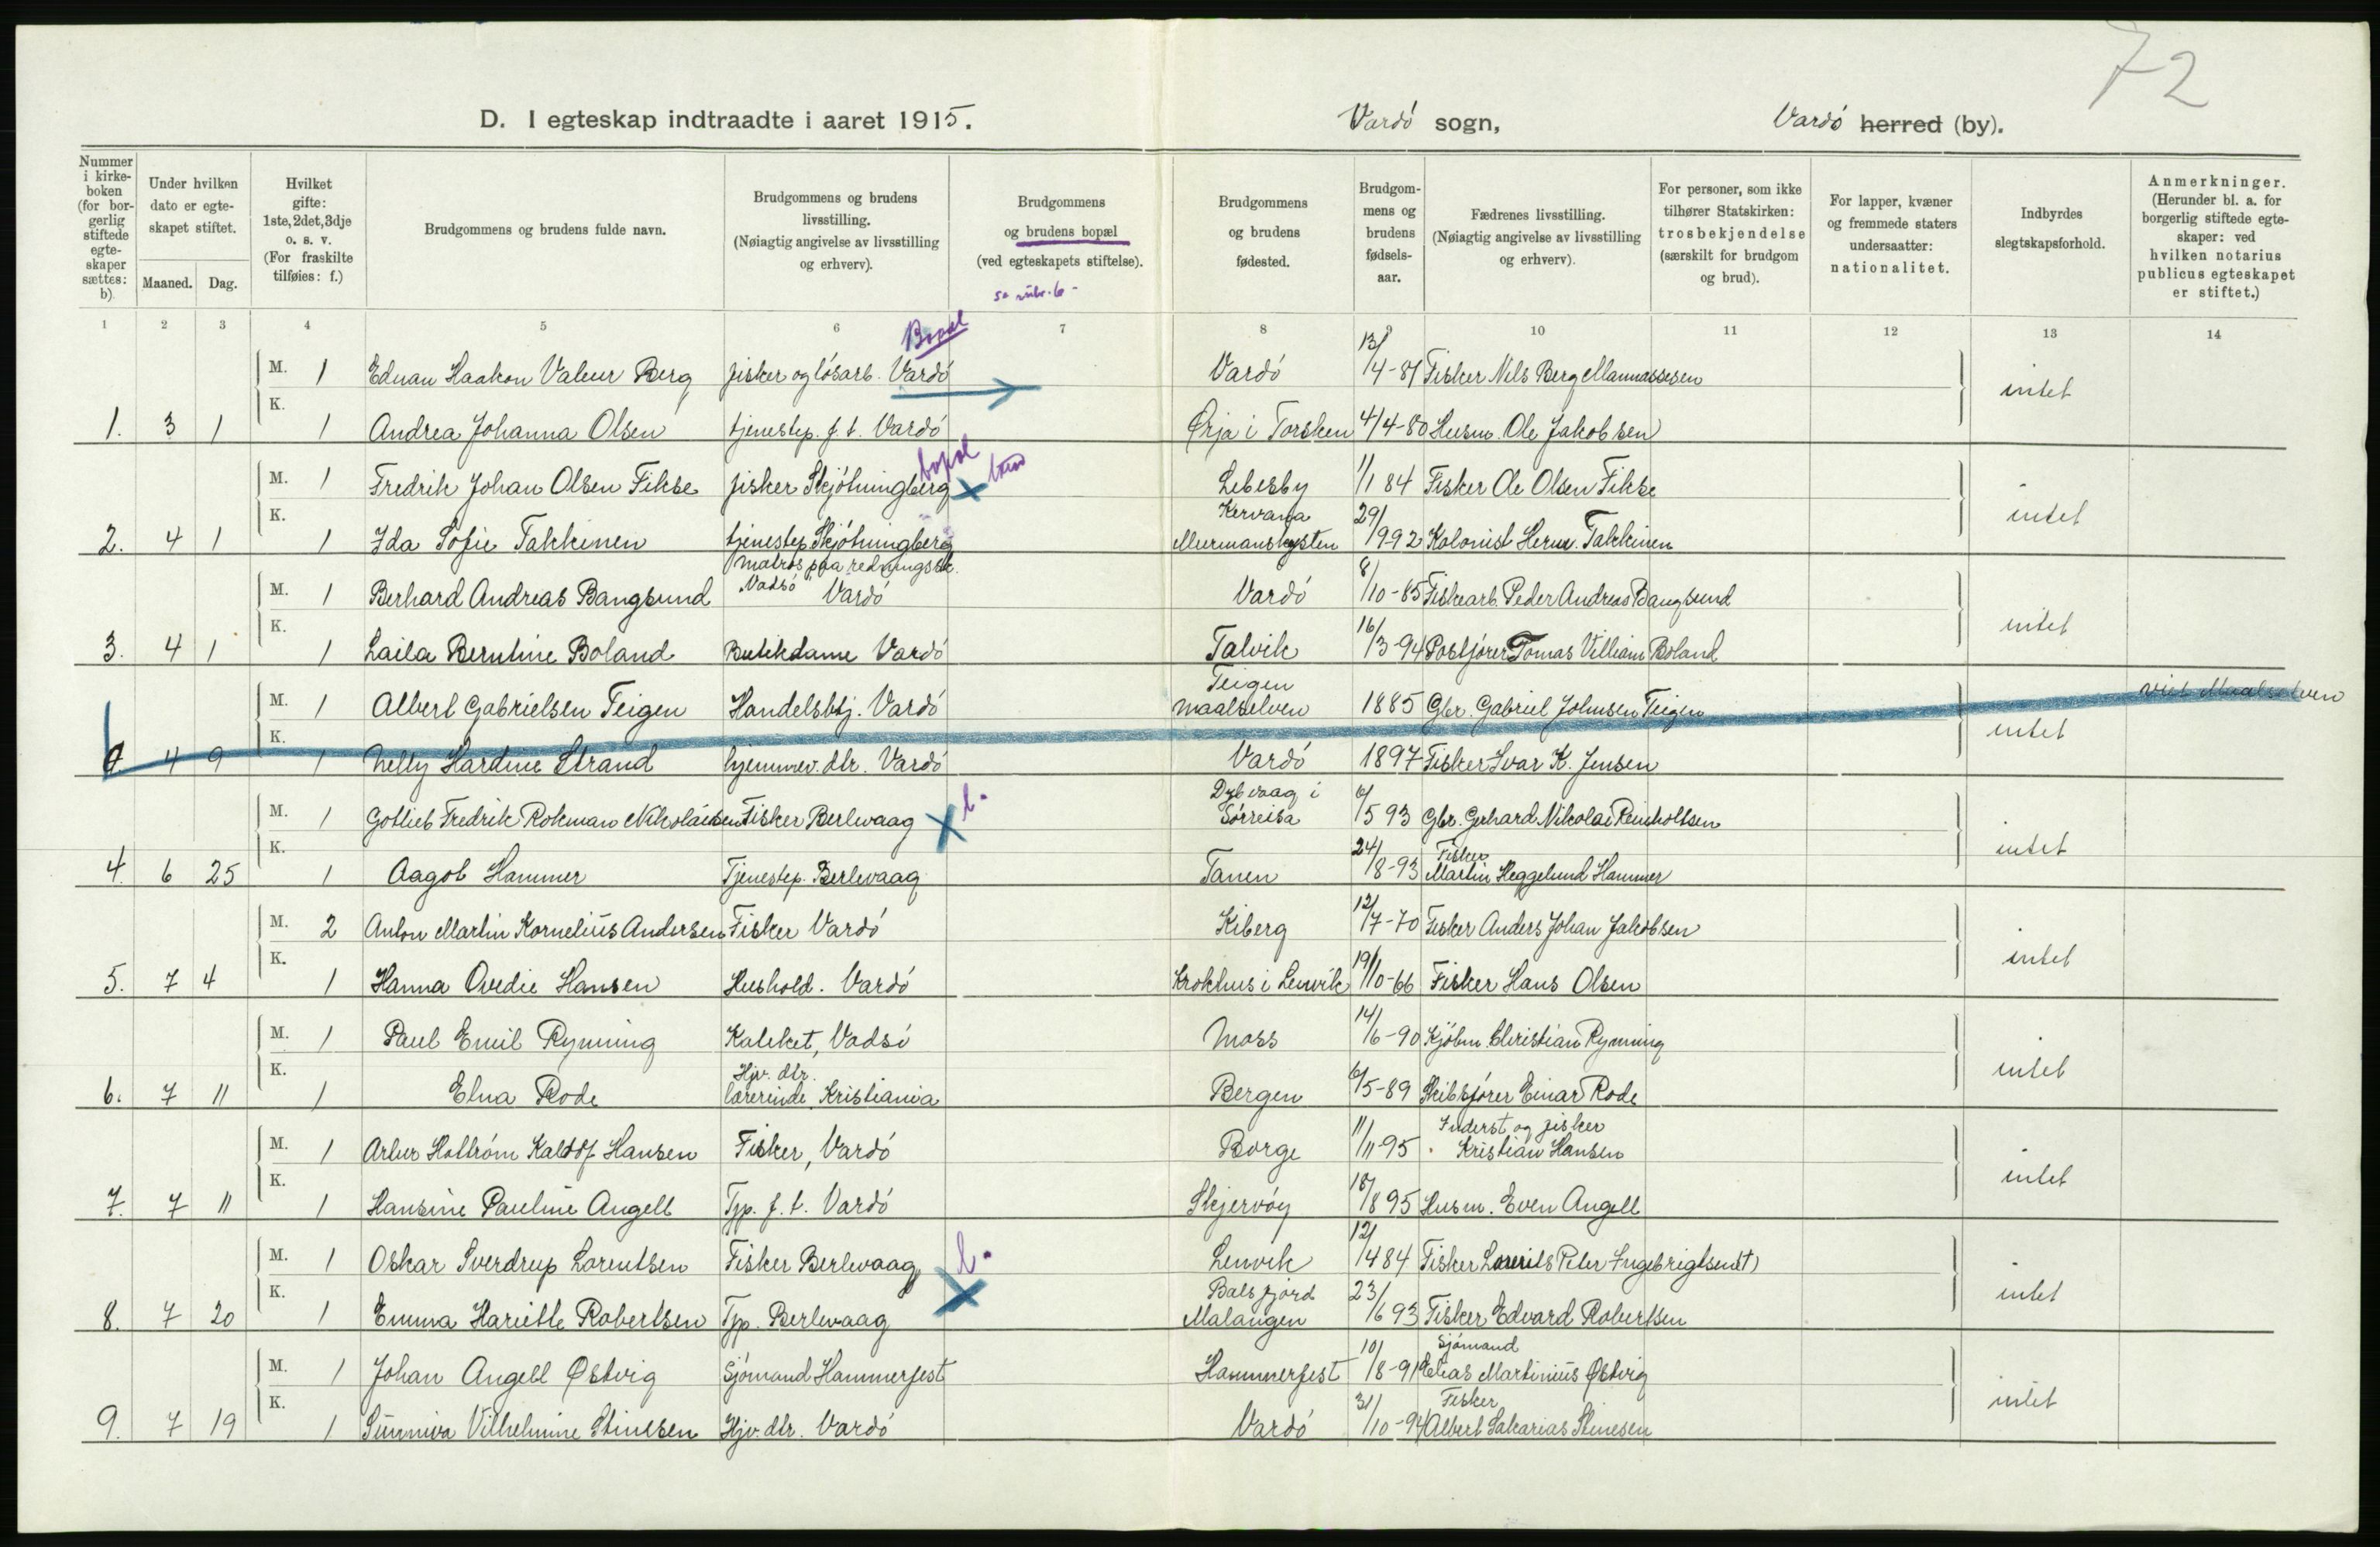 72
D. I egteskap indtraadte i aaret 1915. Vardö sogn, Vardö herred (by).
Nummer i kirkeboken (for borgerlig stiftede egteskaper sættes: b)
Under hvilken dato er egteskapet stiftet.
Maaned. Dag.
Hvilket gifte: 1ste, 2det, 3dje o. s. v. (For fraskilte tilføies: f.)
Brudgommens og brudens fulde navn.
Brudgommens og brudens livsstilling. (Nøiagtig angivelse av livsstilling og erhverv).
Brudgommens og brudens bopæl (ved egteskapets stiftelse).
Brudgommens og brudens fødested.
Brudgommens og brudens fødselsaar.
Fædrenes livsstilling. (Nøiagtig angivelse av livsstilling og erhverv).
For personer, som ikke tilhører Statskirken: trosbekjendelse (særskilt for brudgom og brud).
For lapper, kvæner og fremmede staters undersaatter: nationalitet.
Indbyrdes slegtskapsforhold.
Anmerkninger. (Herunder bl. a. for borgerlig stiftede egteskaper: ved hvilken notarius publicus egteskapet er stiftet.)
1 2 3 4 5 6 7 8 9 10 11 12 13 14
Bopæl
M. 1 Haakon Valeur Berg fisker og lösarb. Vardö Vardö 13/4-81 Fisker Nils Berg Mannassesen
intet
1. 3 1 K. 1 Andrea Johanna Olsen tjenestep. f. t. Vardö Ørja i Torsken 4/4-80 Husm. Ole Jakobsen
bopæl
M. 1 Fredrik Johan Olsen Fikse fisker Skjötningberg Lebesby 1/1 84 Fisker Ole Olsen Fikse
intet
2. 4 1 K. 1 Ida Sofie Takkinen tjenestep. Skjötningberg Murmanskysten 29/9 92 Kolonist Herm. Takkinen
M. 1 Berhard Andreas Bangsund matros paa redningssk. Vadsö Vardö Vardö 8/10-85 Fiskearb. Peder Andreas Bangsund
intet
3. 4 1 K. 1 Laila Berntine Boland Butikdame Vardö Talvik 16/3-94 Postfører Tomas Villiam Boland
M. 1 Albert Gabrielsen Teigen Handelsbtj. Vardö Teigen Maalselven 1885 Gbr. Gabriel Johnsen Teigen
viet Maalselven
intet
4. 4 9 K. 1 Nelly Hardine Strand hjemmev. dtr. Vardö Vardö 1897 Fisker Ivar K. Jensen
M. 1 Gotlieb Fredrik Rokman Nikolaisen Fisker Berlevaag b. Dybvaag i Sörreisa 6/5 93 Gbr. Gerhard Nikolai Reinholtsen
intet
4. 6 25 K. 1 Aagot Hammer Tjenestep. Berlevaag Tanen 24/8-93 Fisker Martin Heggelund Hammer
M. 2 Anton Martin Kornelius Andersen Fisker Vardö Kiberg 12/7-70 Fisker Anders Johan Jakobsen
intet
5. 7 4 K. 1 Hanna Ovedie Hansen Hushold. Vardö Krokhus i Lenvik 19/10-66 Fisker Hans Olsen
M. 1 Paul Emil Rynning Kateket, Vadsö Moss 14/6-90 Kjöbm. Christian Rynning
intet
6. 7 11 K. 1 Elna Rode Hjv. dtr. lærerinde, Kristiania Bergen 6/5-89 Skibsfører Einar Rode
M. 1 Hansen Fisker, Vardö Borge 11/11-95 Inderst og fisker Kristian Hansen
intet
7. 7 11 K. 1 Hansine Pauline Angell Tjp. f. t. Vardö Skjervöy 18/8 95 Husm. Even Angell
M. 1 Oskar Sverdrup Lorentsen Fisker Berlevaag b. Lenvik 12/4 84 Fisker Peter Ingebrigtsen (†)
intet
8. 7 20 K. 1 Emma Hariette Robertsen Tjp. Berlevaag Balsfjord Malangen 23/6 93 Fisker Edvard Robertsen
M. 1 Johan Angell Østvig Sjömand Hammerfest Hammerfest 10/8-91 Sjömand Elias Martinius Østvig
intet
9. 7 19 K. 1 Sunniva Vilhelmine Stinesen Hjv. dtr. Vardö Vardö 31/10-94 Fisker Albert Sakarias Stinesen